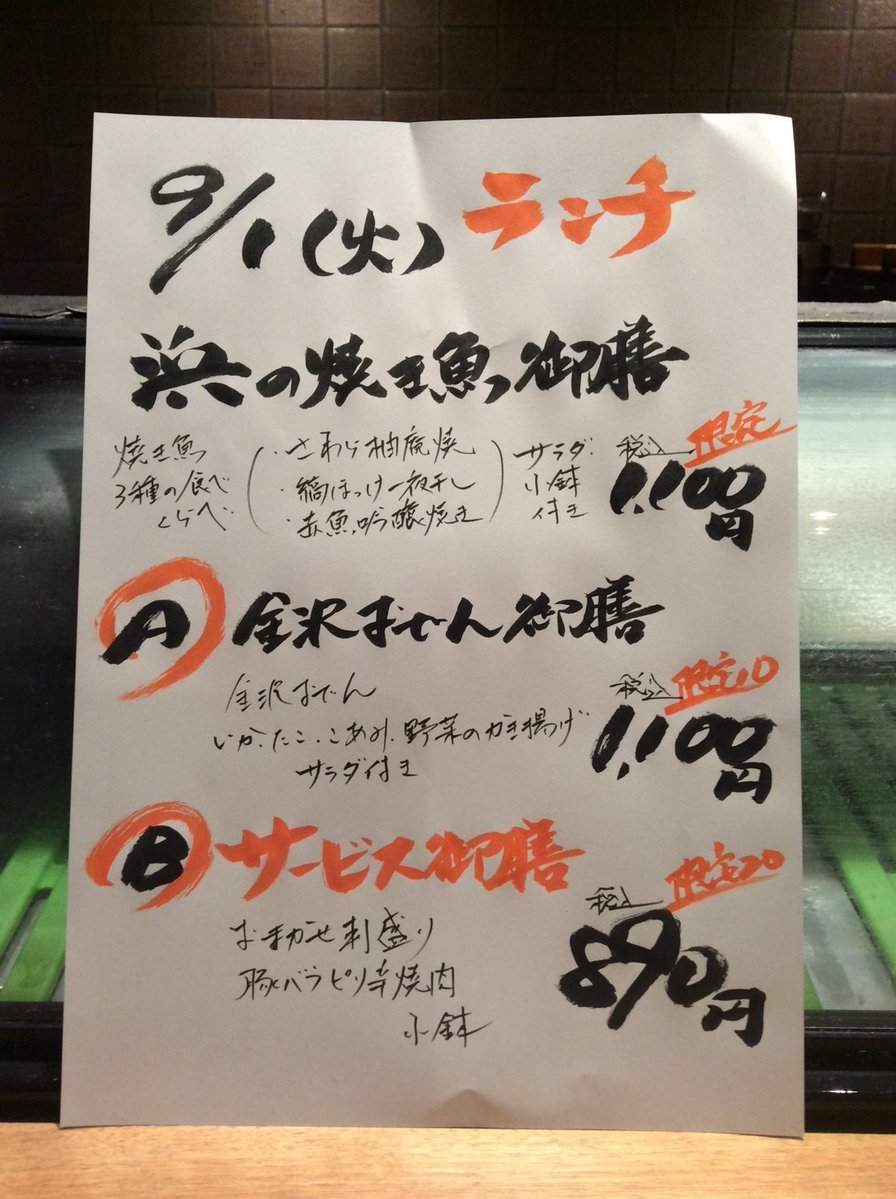 9/1(火) ランチ
浜の焼き魚御膳
焼き魚
3種の食べ
くらべ
・さわら柚庵焼
・縞ほっけ一夜干し
・赤魚吟醸焼き
サラダ・
小鉢
付き
税込 限定
1,100円
A 金沢おでん御膳
金沢おでん
いか、たこ、こあみ、野菜のかき揚げ
サラダ付き
税込 限定10
1,100円
B サービス御膳
おまかせ刺盛り
豚バラピリ辛焼肉
小鉢
税込 限定20
890円